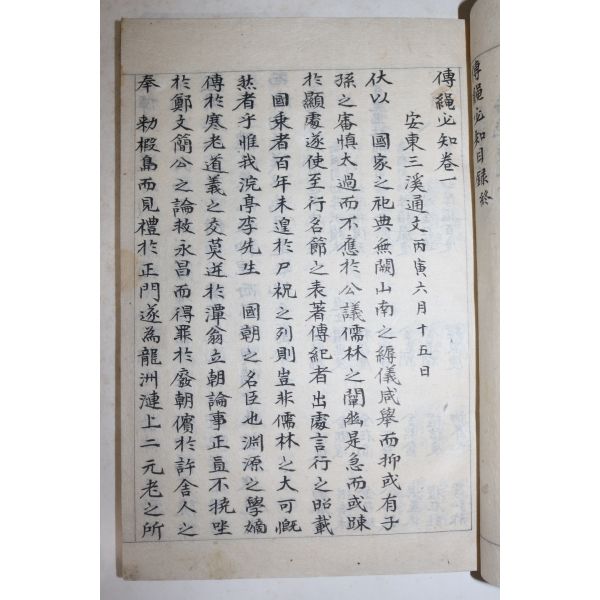 傳繩必知目錄終
傳繩必知卷一
安東三溪通文丙寅六月十五日
伏以 國家之祀典無闕山南之縟儀咸舉而抑或有子
孫之審慎太過而不應於公議儒林之闡幽是急而或踈
於顯處遂使至行名節之表著傳紀者出處言行之昭載
國乘者百年未遑於尸祝之列則豈非儒林之大可慨
然者乎惟我浣亭李先生 國朝之名臣也淵源之學嫡
傳於寒老道義之交莫逆於潭翁立朝論事正直不撓坐
於鄭文簡公之論救永昌而得罪於廢朝儐於許舍人之
奉 勅椵島而見禮於正門遂為龍洲漣上二元老之所